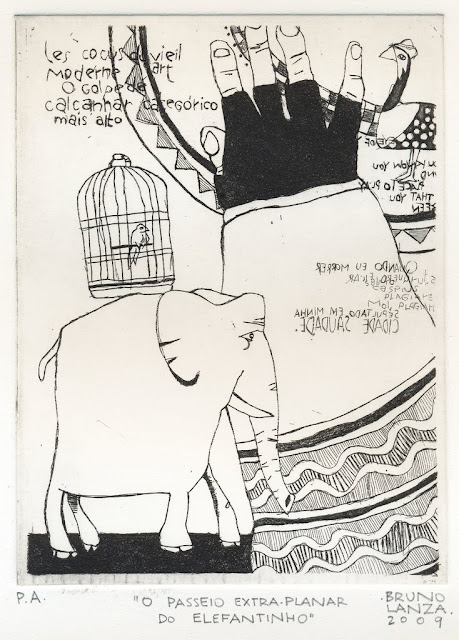 Les cocus du vieil
moderne art
O golpe de
calcanhar categórico
mais alto
KNOW YOU
PLACE TO PLAY
THAT YOU
QUANDO EU MORRER
QUERO FICAR
SEPULTADO EM MINHA
CIDADE SAUDADE.
P.A.
"O PASSEIO EXTRA-PLANAR
DO ELEFANTINHO"
.BRUNO
LANZA.
2009